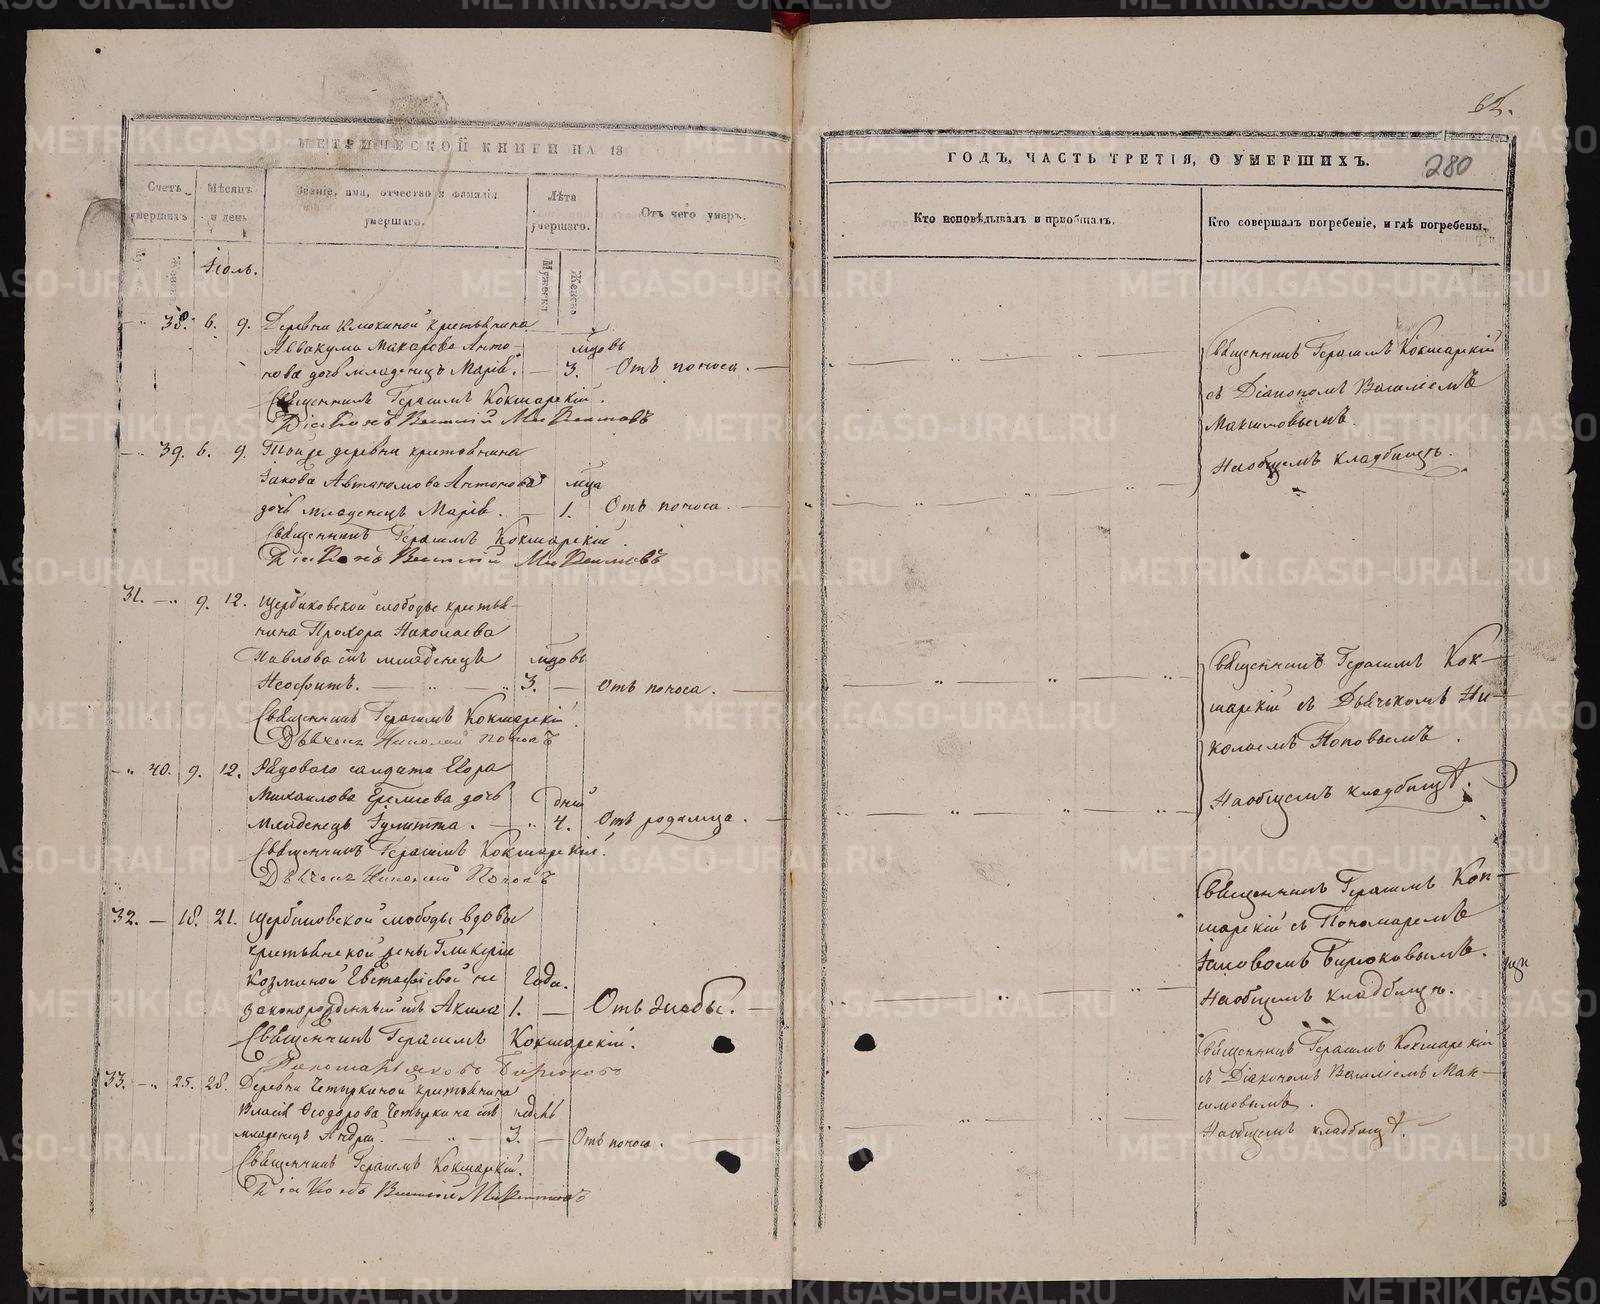 МЕТРИЧЕСКОЙ КНИГИ НА 18
Счетъ умершихъ
Мѣсяцъ и день
Званіе, имя, отчество и фамилія умершаго.
Лѣта умершаго.
Отъ чего умеръ.
Мужеска
Женска
Іюль.
38. 6. 9. Деревни Клюкиной крестьянина
Аввакума Макарова Анто-
нова дочь младенецъ Марія. 3. Отъ поноса.
Священникъ Герасимъ Кокшарскій.
Діаконъ Василій Максимовъ
39. 6. 9. Той же деревни крестьянина
Іакова Автономова Антонова
дочь младенецъ Марія. 1. Отъ поноса.
Священникъ Герасимъ Кокшарскій.
Діаконъ Василій Максимовъ
31. 9. 12. Щербаковской слободы крестья-
нина Прохора Николаева
Павлова младенецъ
Неофитъ. 3. Отъ поноса.
Священникъ Герасимъ Кокшарскій.
Николай Поповъ
40. 9. 12. Рядоваго солдата Егора
Михаилова дочь дней
младенецъ Іулитта. 4. Отъ родимца.
Священникъ Герасимъ Кокшарскій.
Николай Поповъ
32. 18. 21. Щербаковской слободы вдовы
крестьянской жены Гликеріи
Козминой Евстафіевой не года.
законорожденный Акила 1. Отъ знобы.
Священникъ Герасимъ Кокшарскій.
Пономарь Іаковъ Бирюковъ
33. 25. 28. Деревни Четыркиной крестьянина
Власія Ѳеодорова Четыркина
младенецъ Андрей. 3. Отъ поноса.
Священникъ Герасимъ Кокшарскій.
Діаконъ Василій Максимовъ
ГОДЪ, ЧАСТЬ ТРЕТІЯ, О УМЕРШИХЪ.
280
Кто исповѣдывалъ и пріобщалъ.
Кто совершалъ погребеніе, и гдѣ погребены.
Священникъ Герасимъ Кокшарскій
съ Діакономъ Василіемъ
Максимовымъ.
На общемъ кладбищѣ.
Священникъ Герасимъ Кок-
шарскій съ Дьячкомъ Ни-
колаемъ Поповымъ.
На общемъ кладбищѣ.
Священникъ Герасимъ Кок-
шарскій съ Пономаремъ
Іаковомъ Бирюковымъ.
На общемъ кладбищѣ.
Священникъ Герасимъ Кокшарскій
съ Діакономъ Василіемъ Мак-
симовымъ.
На общемъ кладбищѣ.
METRIKI.GASO-URAL.RU